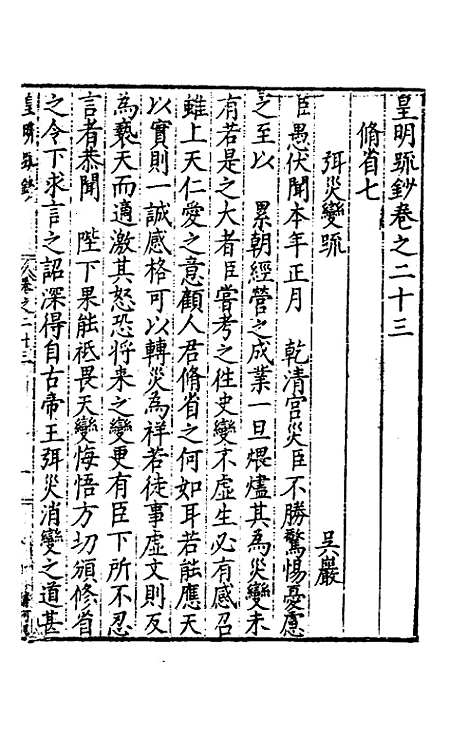 皇明疏鈔卷之二十三
脩省七
弭災變疏　吳巖
臣愚伏聞本年正月　乾清宮災臣不勝驚惕憂慮
之至以　累朝經營之成業一旦煨燼其為災變未
有若是之大者臣嘗考之往史變不虛生必有感召
雖上天仁愛之意顧人君脩省之何如耳若能應天
以實則一誠感格可以轉災為祥若徒事虛文則反
為褻天而適激其怒恐將來之變更有臣下所不忍
言者恭聞　陛下果能祗畏天變悔悟方切頒修省
之令下求言之詔深得自古帝王弭災消變之道甚
皇明疏鈔　卷之二十三　一